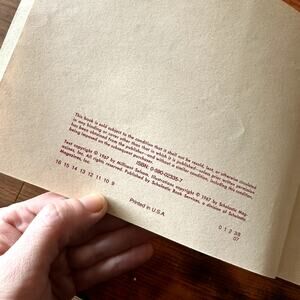 This book is sold subject to the condition that it shall not be resold, lent, or otherwise circulated
in any binding or cover other than that in which it is published—unless prior written permission
has been obtained from the publisher—and without a similar condition, including this condition,
being imposed on the subsequent purchaser.
ISBN: 0-590-02335-7
Text copyright © 1967 by Millicent Selsam. Illustrations copyright © 1967 by Scholastic Mag-
azines, Inc. All rights reserved. Published by Scholastic Book Services, a division of Scholastic
Magazines, Inc.
16 15 14 13 12 11 10 9
0 1 2 3/8
07
Printed in U.S.A.